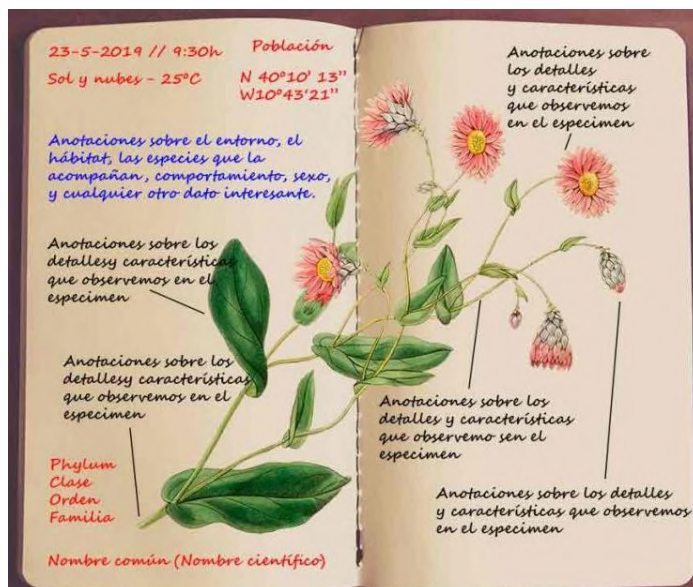 23-5-2019 // 9:30h
Sol y nubes - 25ºC
Población
N 40º10' 13"
W10º43'21"
Anotaciones sobre el entorno, el
hábitat, las especies que la
acompañan, comportamiento, sexo,
y cualquier otro dato interesante.
Anotaciones sobre los
detallesy características
que observemos en el
especimen
Anotaciones sobre los
detallesy características
que observemos en el
especimen
Phylum
Clase
Orden
Familia
Nombre común (Nombre científico)
Anotaciones sobre
los detalles
y características
que observemos
en el especimen
Anotaciones sobre los
detalles y características
que observemo sen el
especimen
Anotaciones sobre los detalles
y características que observemos
en el especimen